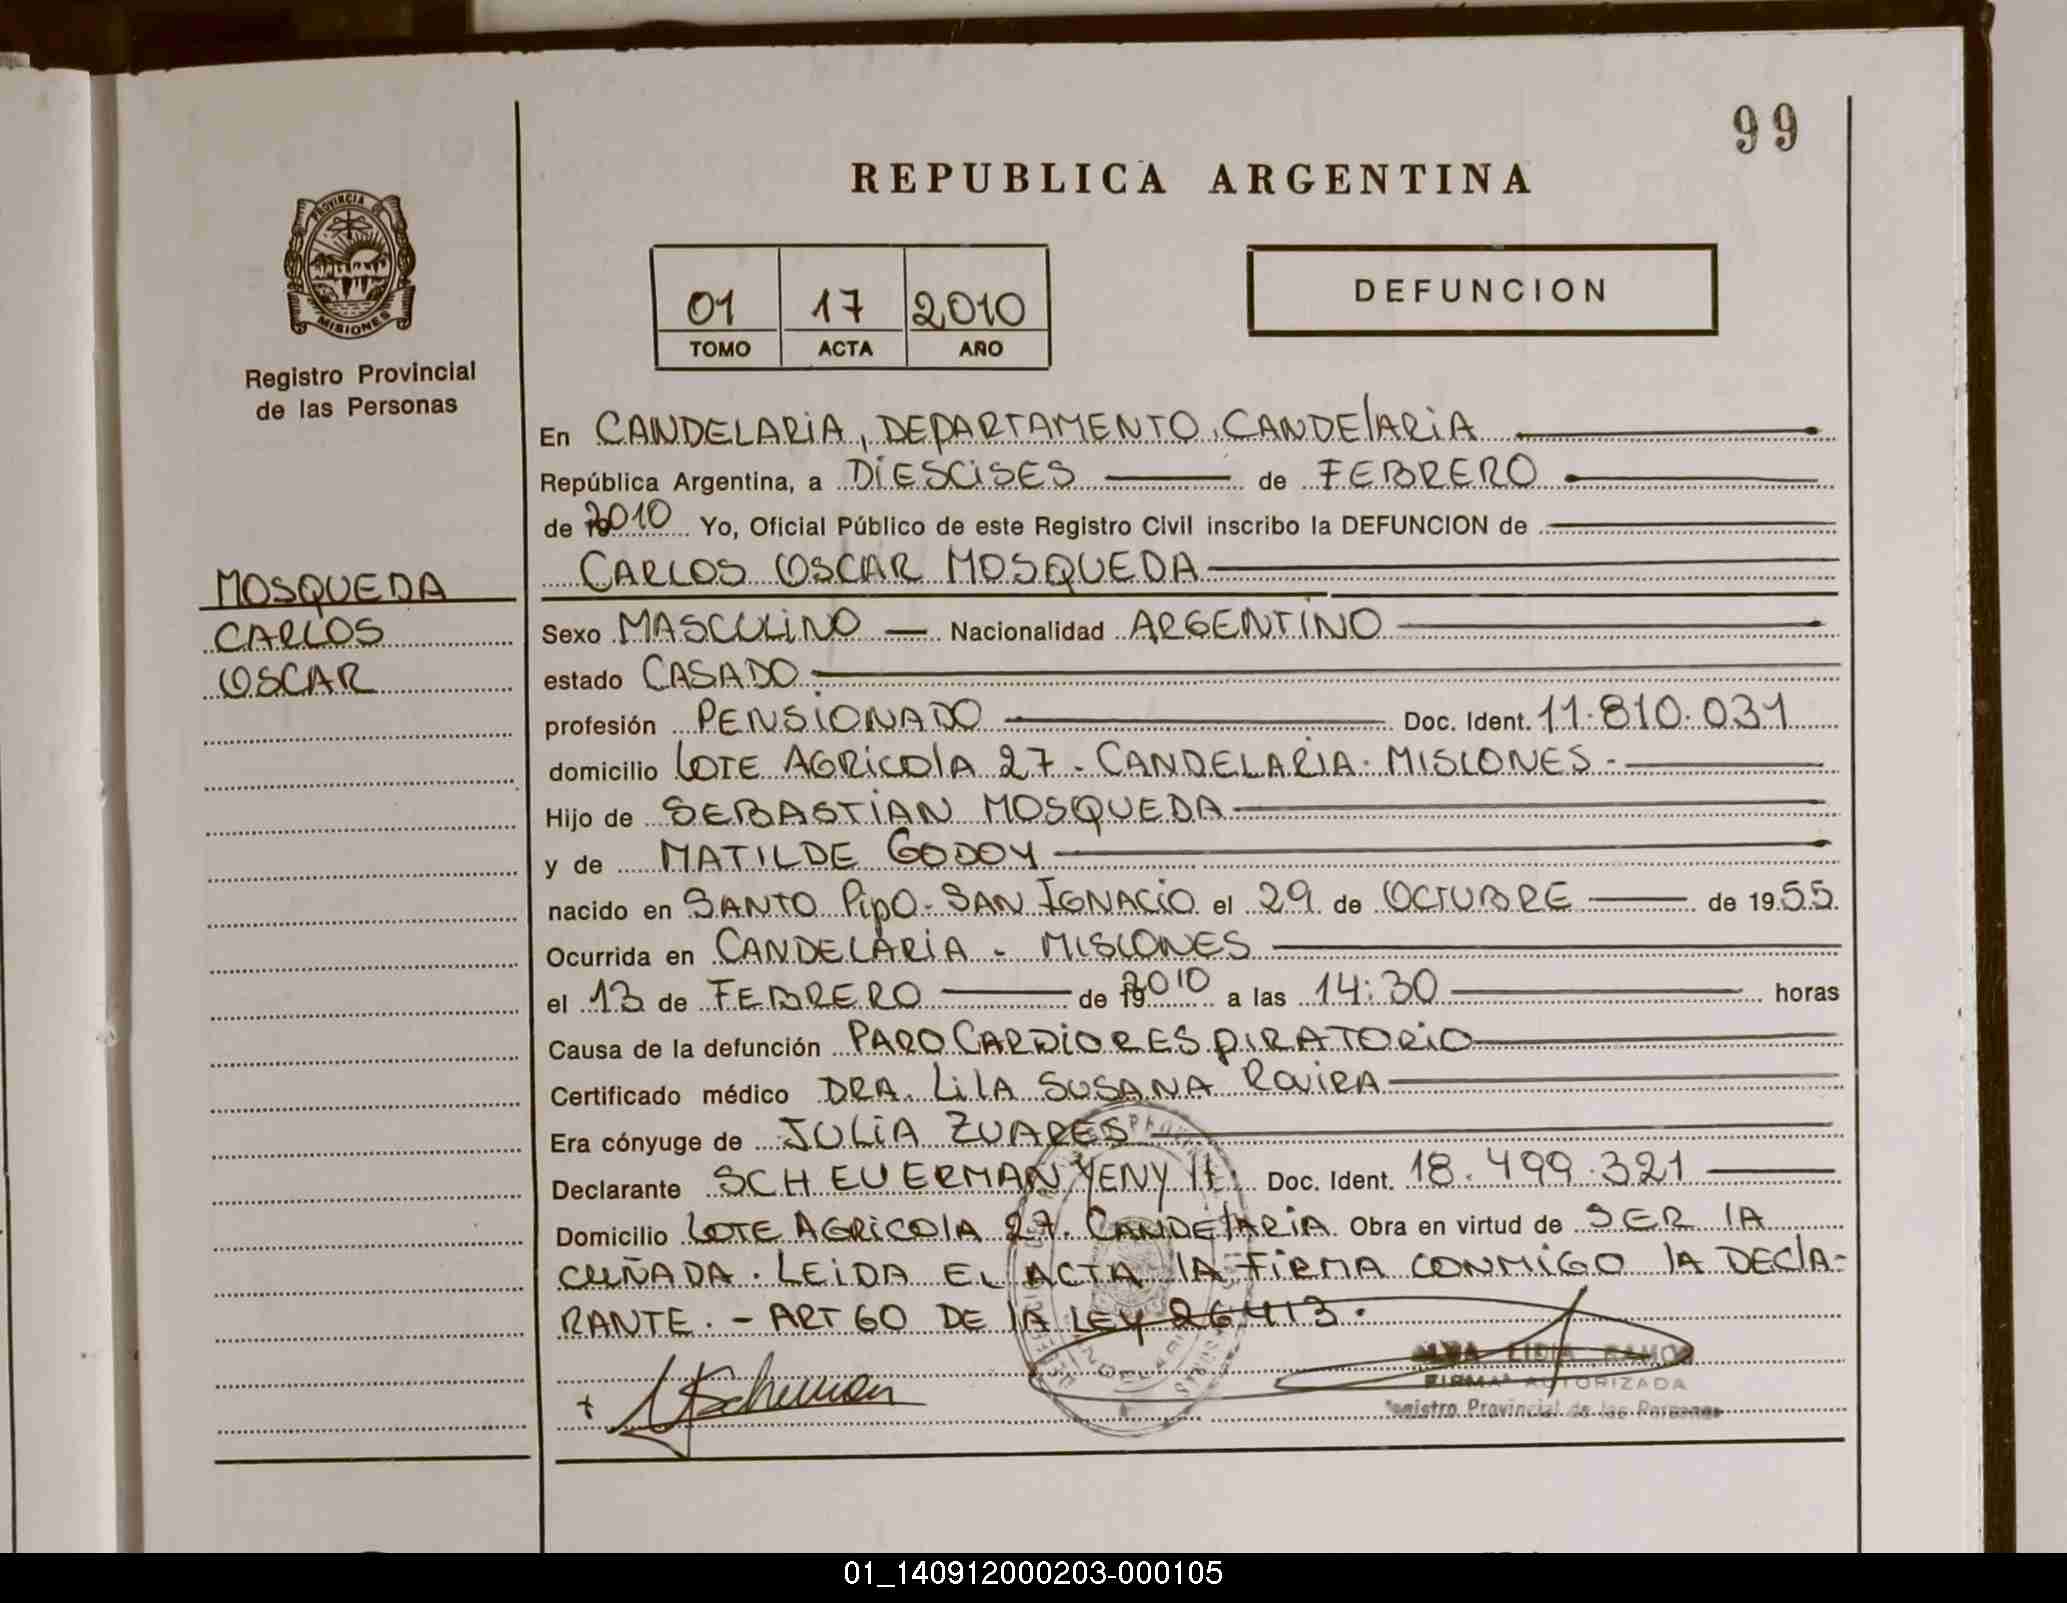 99
REPUBLICA ARGENTINA
PROVINCIA
MISIONES
Registro Provincial
de las Personas
01 17 2010
TOMO ACTA AÑO
DEFUNCION
MOSQUEDA
CARLOS
OSCAR
En CANDELARIA, DEPARTAMENTO, CANDElARIA
República Argentina, a DIESCISES de FEBRERO
de 2010 Yo, Oficial Público de este Registro Civil inscribo la DEFUNCION de
CARLOS OSCAR MOSQUEDA
Sexo MASCULINO Nacionalidad ARGENTINO
estado CASADO
profesión PENSIONADO Doc. Ident. 11.810.031
domicilio LOTE AGRICOlA 27 - CANDELARIA - MISIONES -
Hijo de SEBASTIAN MOSQUEDA
y de MATILDE GODOY
nacido en SANTO PipO - SAN IGNACIO el 29 de OCTUBRE de 1955
Ocurrida en CANDELARIA - MISIONES
el 13 de FEBRERO de 2010 a las 14:30 horas
Causa de la defunción PARO CARDIORESPIRATORIO
Certificado médico DRA. LilA SUSANA ROVIRA
Era cónyuge de JULIA ZUARES
Declarante SCHEUERMAN YENY Doc. Ident. 18.499.321
Domicilio LOTE AGRICOlA 27. CANDElARIA Obra en virtud de SER lA
CUÑADA. LEIDA EL ACTA lA FIRMA CONMIGO lA DEClA-
RANTE. - ART 60 DE lA LEY 26413.
LIDIA RAMOS
FIRMA AUTORIZADA
Registro Provincial de las Personas
01_140912000203-000105